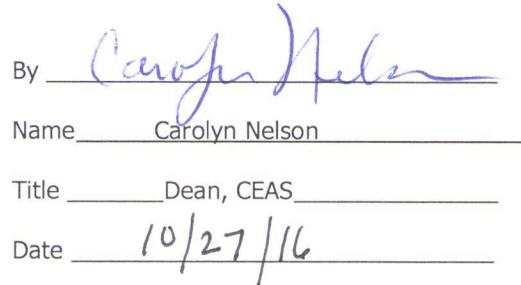 By Carolyn Nelson
Name Carolyn Nelson
Title Dean, CEAS
Date 10/27/16